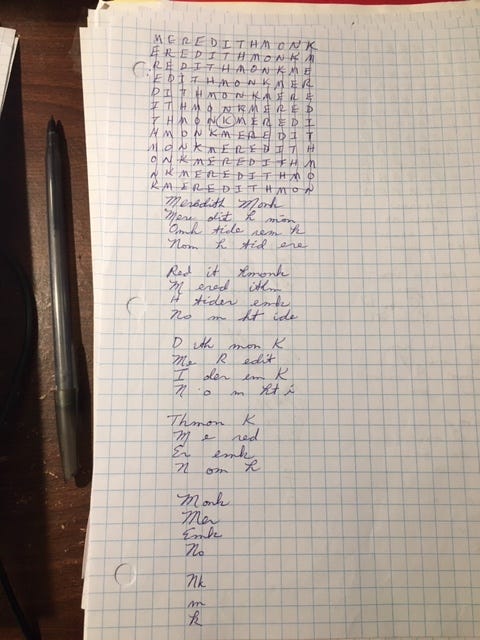 MEREDITHMONK
EREDITHMONKM
REDITHMONKME
EDITHMONKMER
DITHMONKMERE
ITHMONKMERED
THMONKMEREDI
HMONKMEREDIT
MONKMEREDITH
ONKMEREDITHM
NKMEREDITHMO
KMEREDITHMON
Meredith Monk
Mere dit h mon
Omk tide rem k
Nom h tid ere
Red it hmonk
M ered ithm
H tider emk
No m ht ide
D ith mon K
Me R edit
I der em K
N o m ht i
Thmon K
M e red
Er emk
N om h
Monk
Mer
Emk
No
Nk
m
k